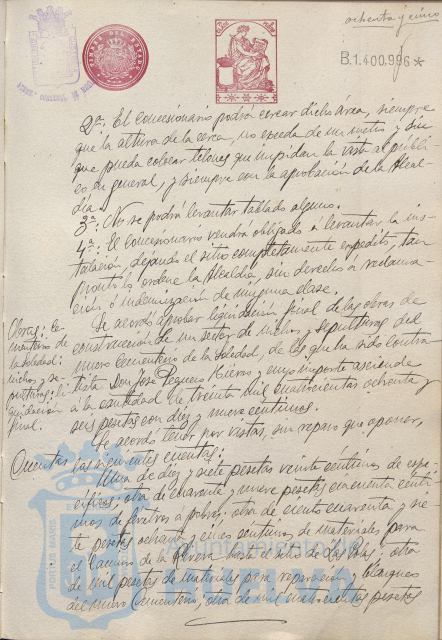 ochenta y cinco
TIMBRE DEL ESTADO
B.1.400.996*
2ª: El concesionario podrá cercar dicho área, siempre
que la altura de la cerca, no exceda de un metro y sin
que pueda colocar telones que impidan la vista al públi-
co en general, y siempre con la aprobación de la Alcal-
día.
3ª: No se podrá levantar tablado alguno.
4ª: El concesionario vendrá obligado á levantar la ins-
talación, dejando el sitio completamente expedito, tan
pronto lo ordene la Alcaldía, sin derecho á reclama-
ción ó indemnización de ninguna clase.
Obras: Ce-
menterio de
la Soledad:
nichos y se-
pulturas: li-
quidación
final.
Se acordó aprobar liquidación final de las obras de
construcción de un sector de nichos y sepulturas del
nuevo Cementerio de la Soledad, de las que ha sido contra-
tista Don José Peguero Fierro y cuyo importe asciende
á la cantidad de treinta mil cuatrocientas ochenta y
seis pesetas con diez y nueve centimos.
Cuentas
Se acordó tener por vistas, sin reparo que oponer,
las siguientes cuentas:
Una de diez y siete pesetas veinte céntimos de espe-
cíficos; otra de cuarenta y nueve pesetas cincuenta cénti-
mos de féretros a pobres; otra de ciento cuarenta y sie-
te pesetas ochenta y cinco centimos de materiales para
el Camino de la Ribera hasta el de Las ; otra
de mil pesetas de materiales para reparación y blanqueo
del nuevo Cementerio; otra de mil cuatrocientas pesetas